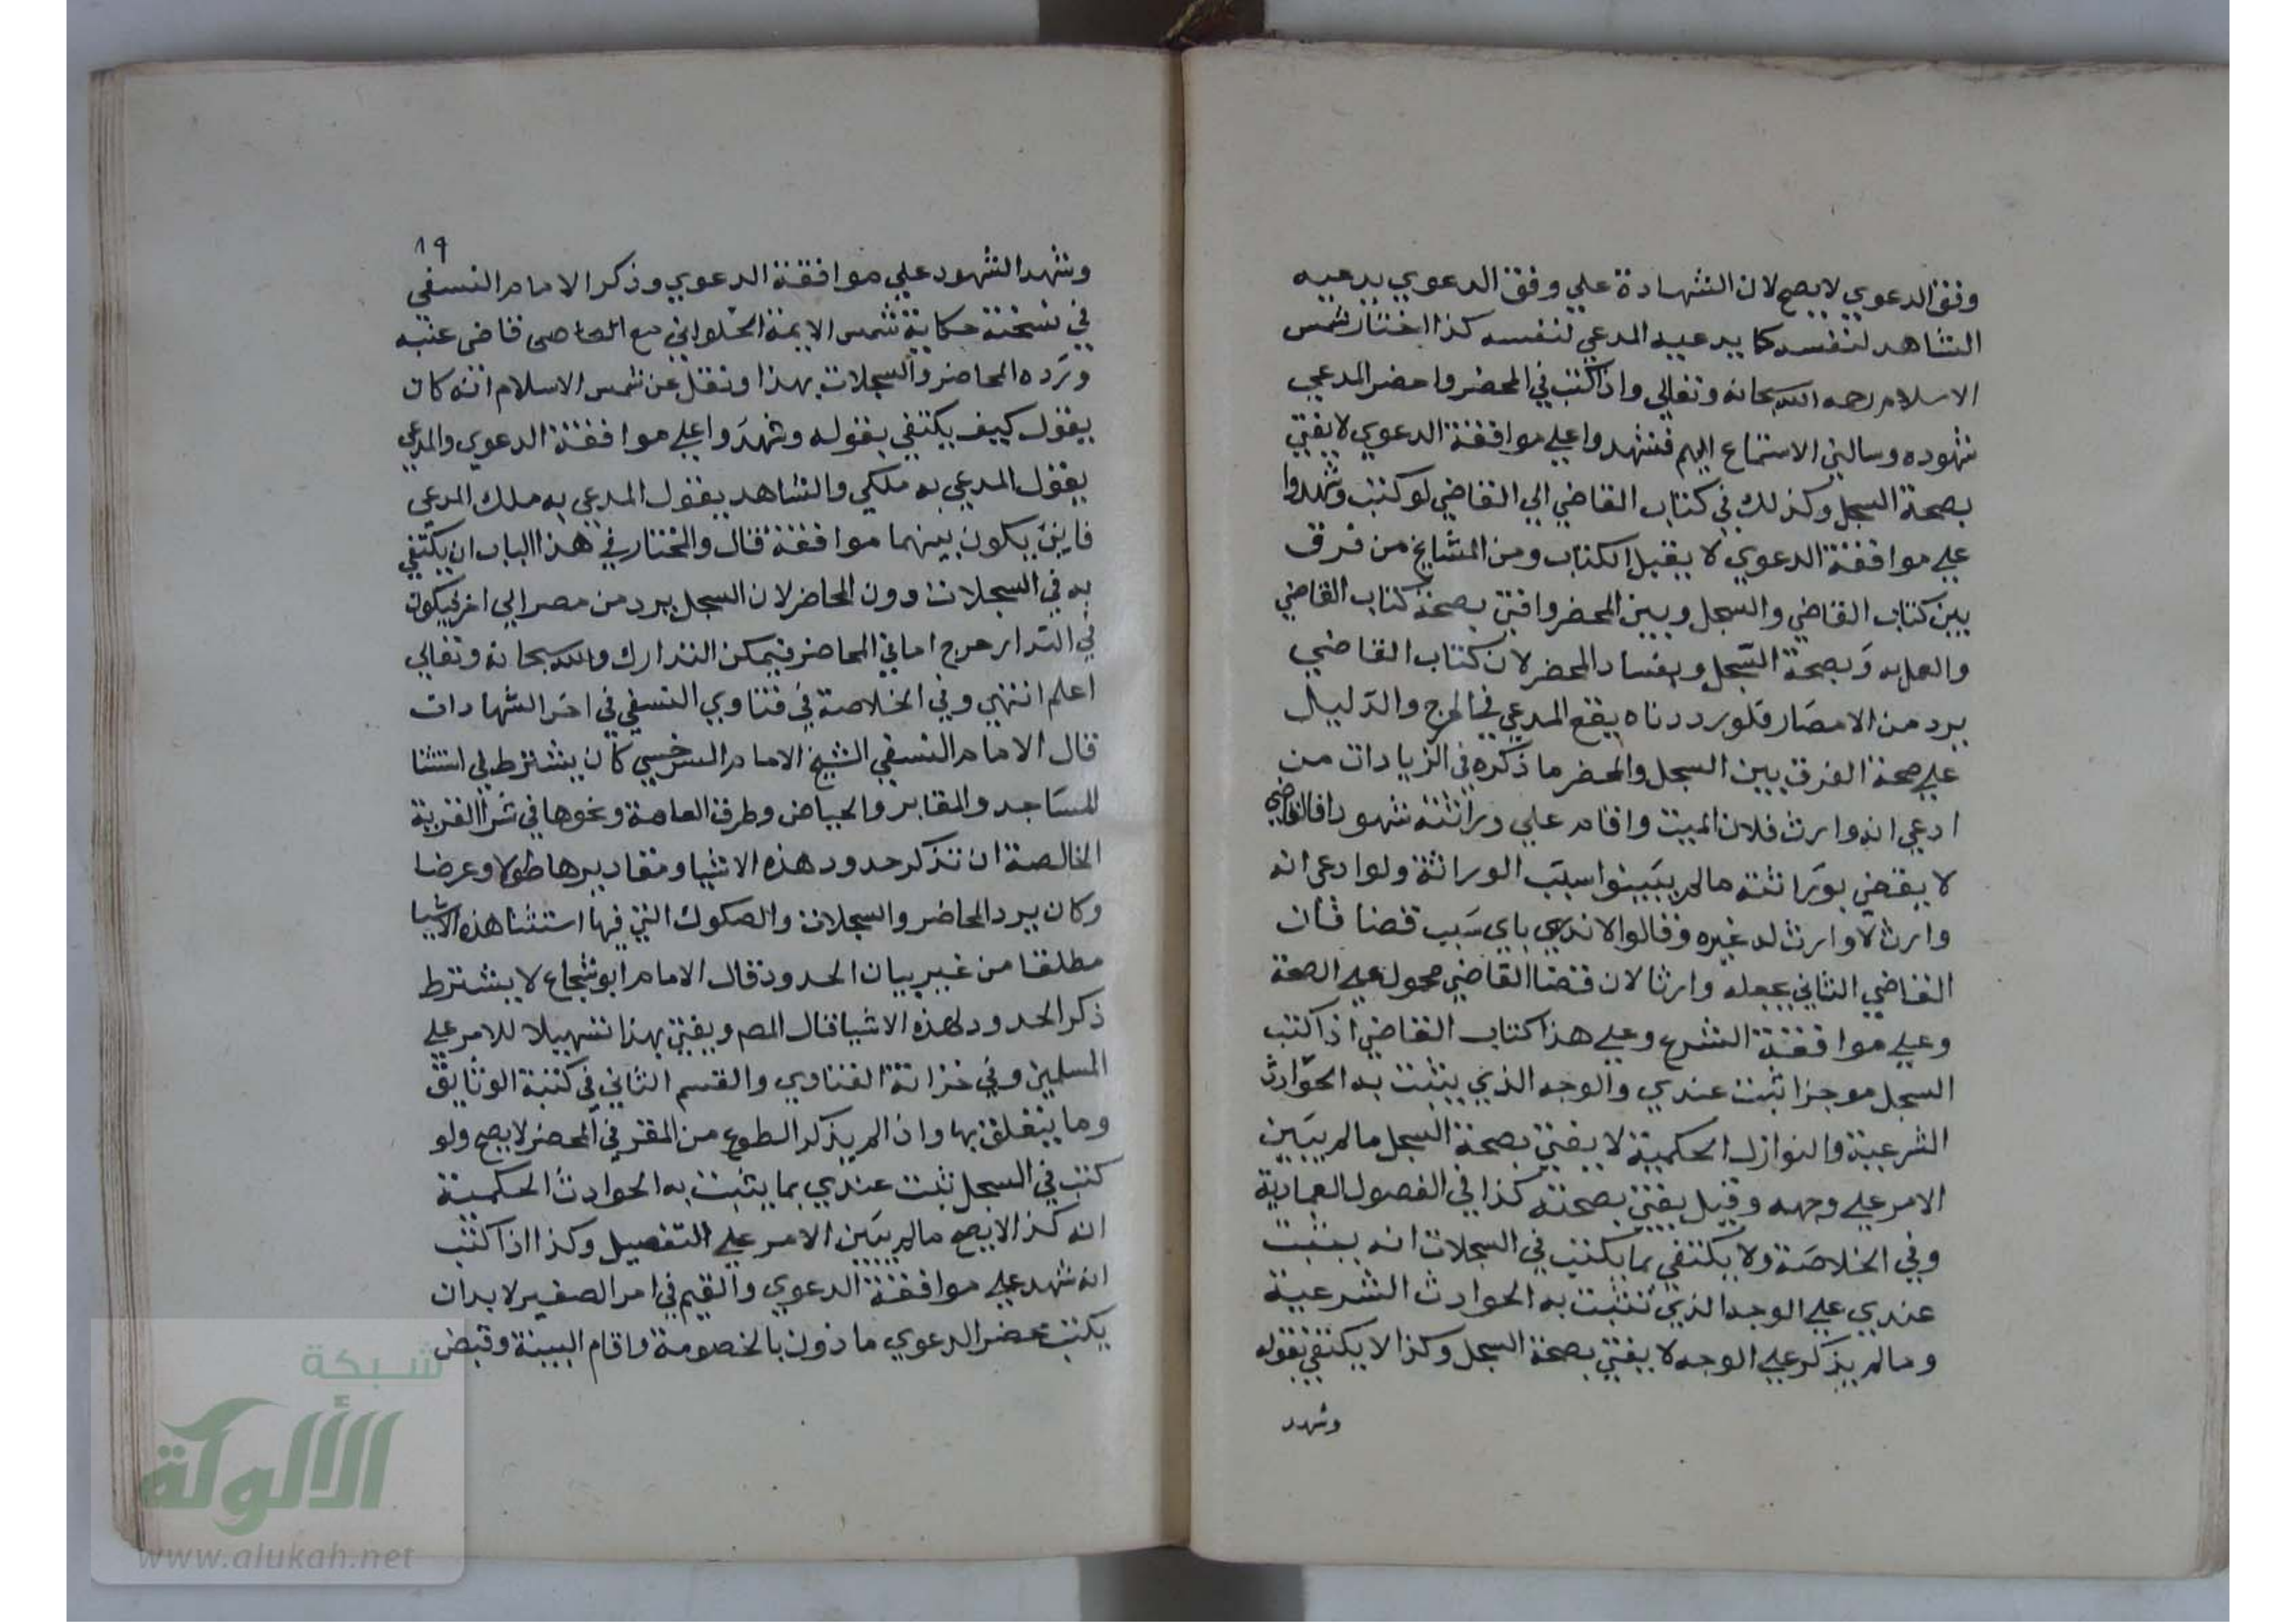 وفق الدعوي لا يصح لان الشهادة علي وفق الدعوي يدعيه
الشاهد لنفسه كما يدعيه المدعي لنفسه كذا اختار شمس
الاسلام رحمه الله سبحانه وتعالي واذا كتب في المحضر واحضر المدعي
شهوده وسالني الاستماع اليهم فشهدوا علي موافقة الدعوي لا يفتي
بصحة السجل وكذلك في كتاب القاضي الي القاضي لو كتب وشهدوا
علي موافقة الدعوي لا يقبل الكتاب ومن المشايخ من فرق
بين كتاب القاضي والسجل وبين المحضر وافتي بصحة كتاب القاضي
والعمل به وبصحة السجل وبفساد المحضر لان كتاب القاضي
يرد من الامصار فلو رددناه يقع المدعي في الحرج والدليل
علي صحة الفرق بين السجل والمحضر ما ذكره في الزيادات من
ادعي انه وارث فلان الميت واقام علي وراثته شهودا فالقاضي
لا يقضي بوراثته ما لم يبينوا سبب الوراثة ولو ادعي انه
وارث لا وارث له غيره وقالوا لا ندري باي سبب قضا فان
القاضي الثاني يجعله وارثا لان قضا القاضي محمول علي الصحة
وعلي موافقة الشرع وعلي هذا كتاب القاضي اذا كتب
السجل موجزا ثبت عندي والوجه الذي يثبت به الحوادث
الشرعية والنوازل الحكمية لا يفتي بصحة السجل ما لم يبين
الامر علي وجهه وقيل يفتي بصحته كذا في الفصول العمادية
وفي الخلاصة ولا يكتفي بما يكتب في السجلات انه يثبت
عندي علي الوجه الذي تثبت به الحوادث الشرعية
وما لم يذكر علي الوجه لا يفتي بصحة السجل وكذا لا يكتفي بقوله
وشهد
١٩
وشهد الشهود علي موافقة الدعوي وذكر الامام النسفي
في نسخته حكاية شمس الايمة الحلواني مع القاضي عتبه
ورده المحاضر والسجلات بهذا ونقل عن شمس الاسلام انه كان
يقول كيف يكتفي بقوله وشهدوا علي موافقة الدعوي والمدعي
يقول المدعي به ملكي والشاهد يقول المدعي به ملك المدعي
فاين يكون بينهما موافقة قال والمختار في هذا الباب ان يكتفي
به في السجلات دون المحاضر لان السجل يرد من مصر الي اخر فيكون
في التدار حرج اما في المحاضر فيمكن التدارك والله سبحانه وتعالي
اعلم انتهي وفي الخلاصة في فتاوي النسفي في اخر الشهادات
قال الامام النسفي الشيخ الامام السرخسي كان يشترط في استثنا
المساجد والمقابر والحياض وطرق العامة ونحوها في شرا القرية
الخالصة ان تذكر حدود هذه الاشيا ومقاديرها طولا وعرضا
وكان يرد المحاضر والسجلات والصكوك التي فيها استثنا هذه الاشيا
مطلقا من غير بيان الحدود قال الامام ابو شجاع لا يشترط
ذكر الحدود لهذه الاشيا قال المص ويفتي بهذا تسهيلا للامر علي
المسلمين وفي خزانة الفتاوي والقسم الثاني في كتبة الوثايق
وما يتعلق بها واذا لم يذكر الطوع من المقر في المحضر لا يصح ولو
كتب في السجل ثبت عندي بما يثبت به الحوادث الحكمية
انه كذا لا يصح ما لم يبين الامر علي التفصيل وكذا اذا كتب
انه شهد علي موافقة الدعوي والقيم في امر الصغير لا بد ان
يكتب محضر الدعوي ماذون بالخصومة واقام البينة وقبض
شبكة
الألوكة
www.alukah.net